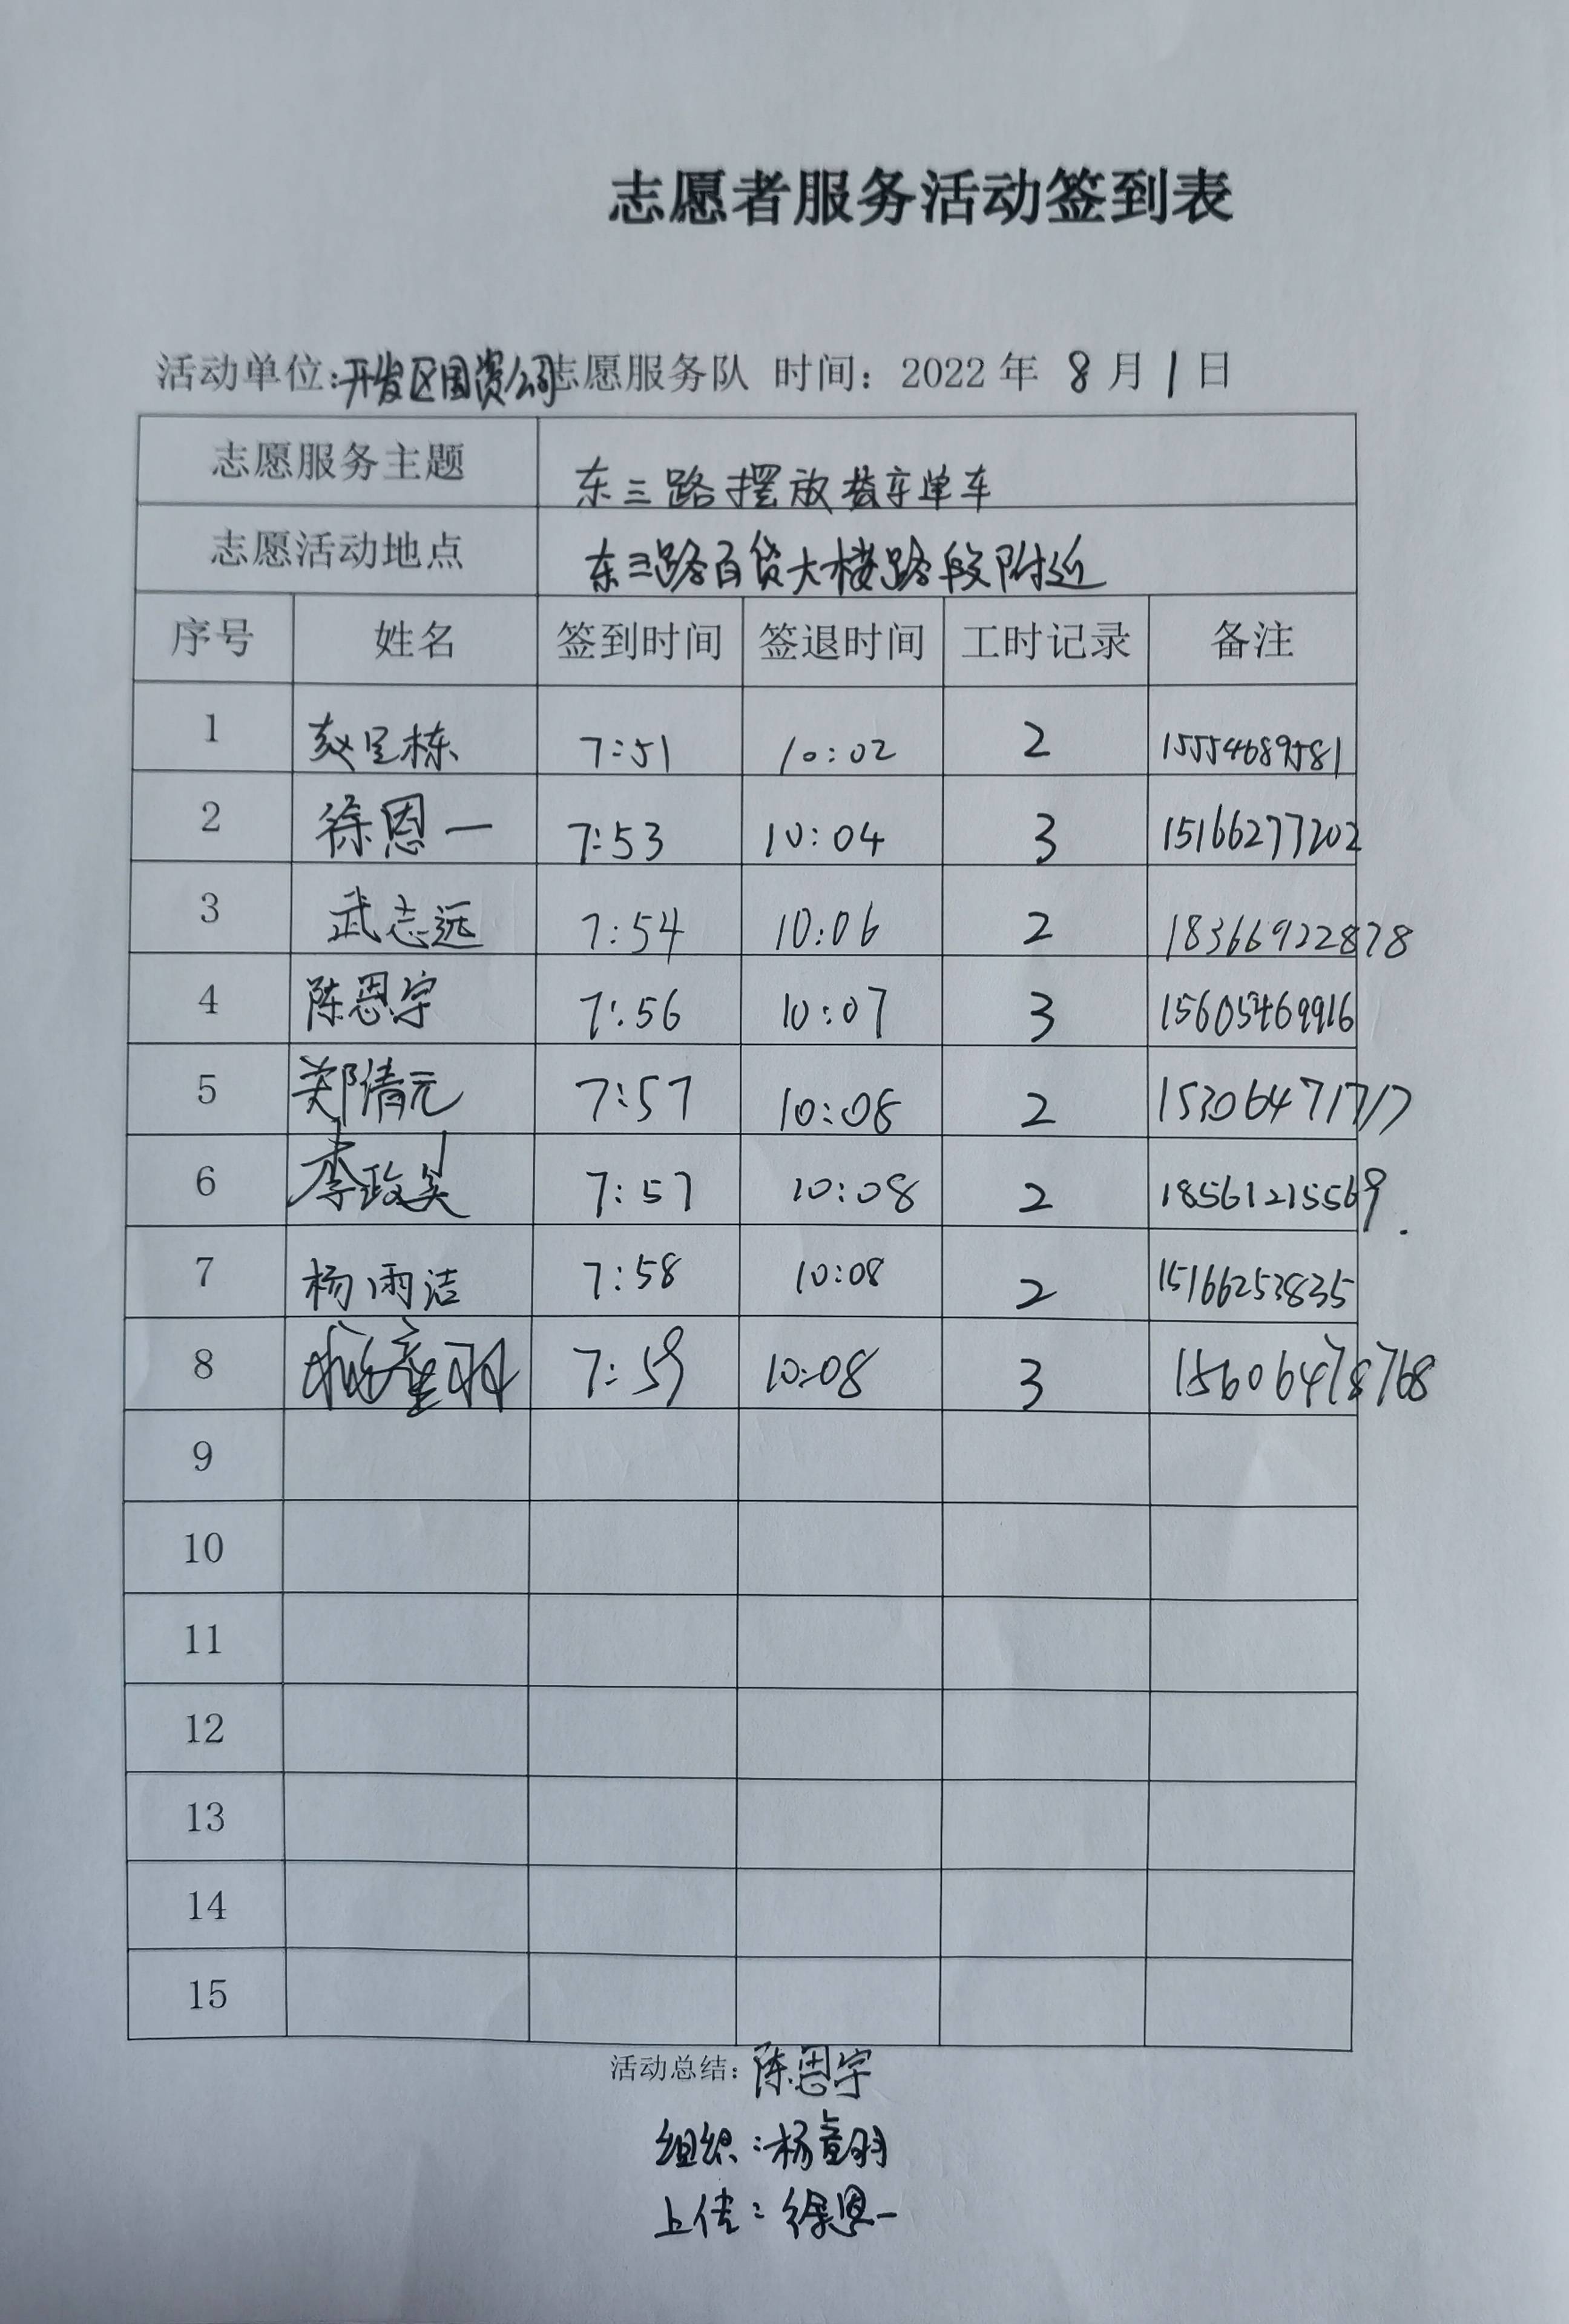 志愿者服务活动签到表
活动单位:开发区国资公司志愿服务队 时间: 2022 年 8 月 1 日
志愿服务主题 东三路摆放共享单车
志愿活动地点 东三路百货大楼路段附近
序号 姓名 签到时间 签退时间 工时记录 备注
1 赵呈栋 7:51 10:02 2 15554689581
2 徐恩一 7:53 10:04 3 15166277202
3 武志远 7:54 10:06 2 18366922878
4 陈恩宇 7:56 10:07 3 15605469916
5 郑倩元 7:57 10:08 2 15306471717
6 李政昊 7:57 10:08 2 18561215569.
7 杨雨洁 7:58 10:08 2 15166253835
8 杨童羽 7:59 10:08 3 15606478768
9
10
11
12
13
14
15
活动总结: 陈恩宇
组织:杨童羽
上传:徐恩一